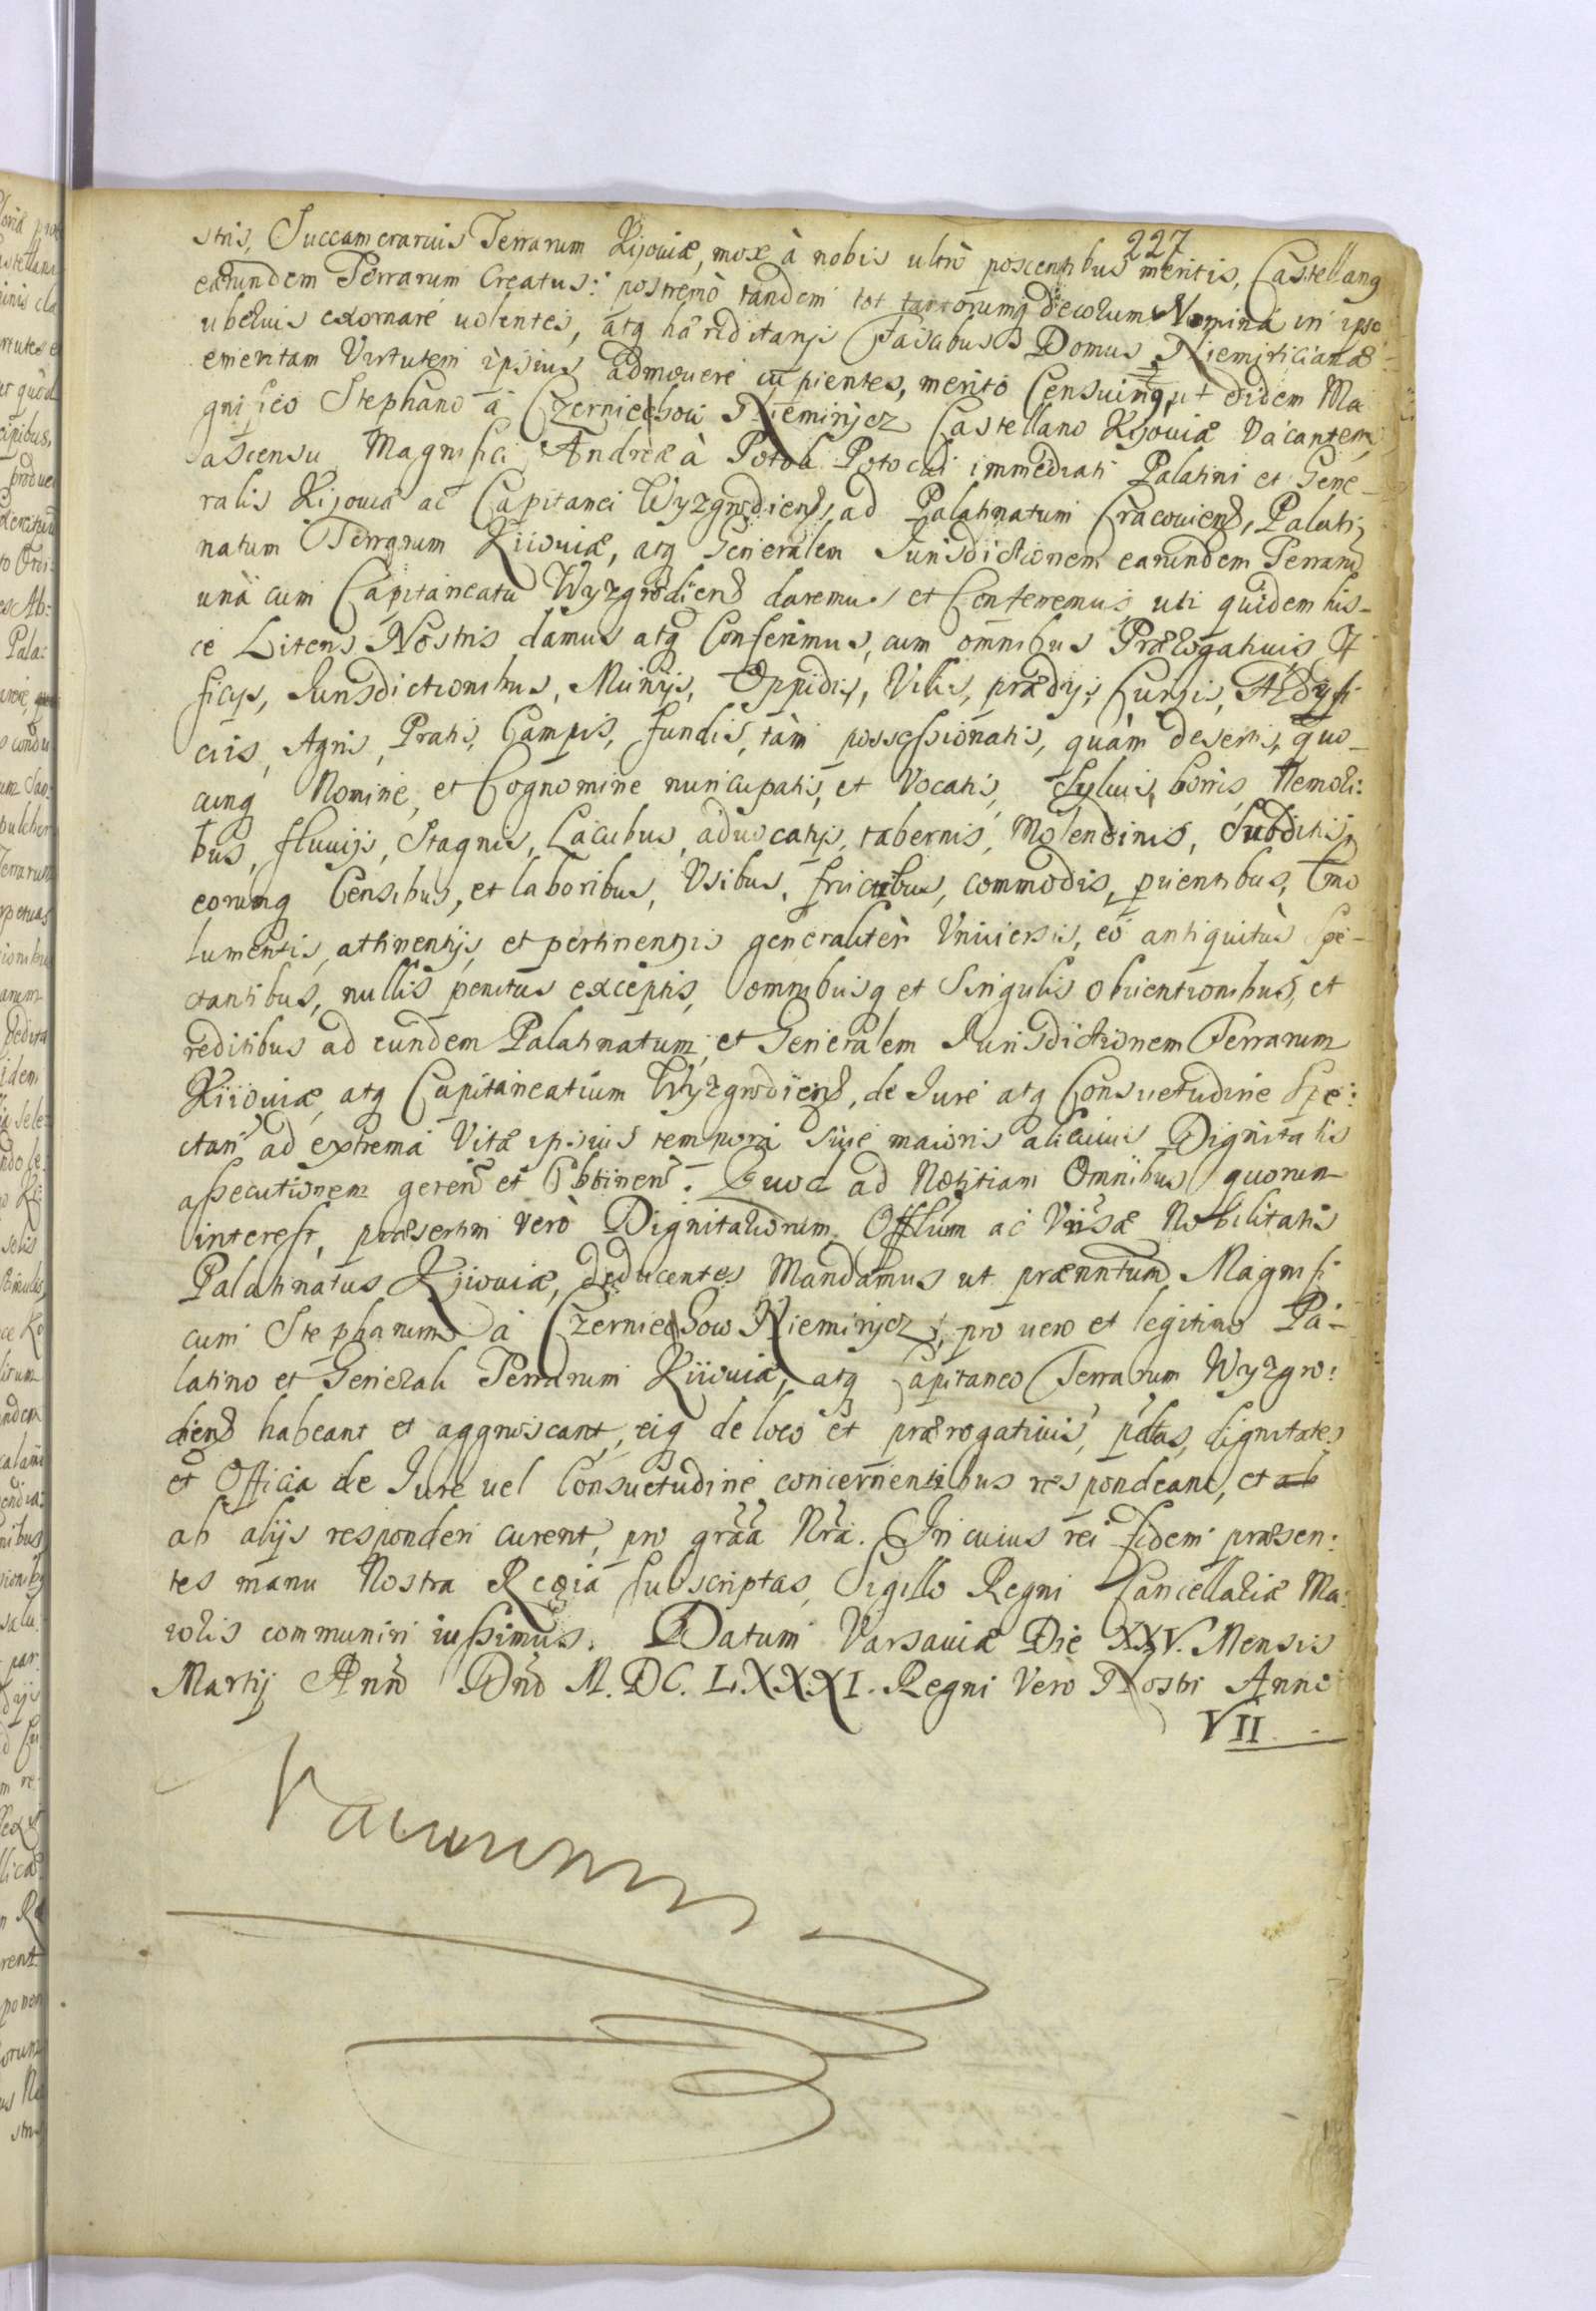 227
stris, Succamerarius Terrarum Kijoviæ, mox à nobis ultrò poscentibus meritis, Castellanq
earundem Terrarum Creatus: postremò tandem tot tantorumq decorum Nomina in ipso
uberius exornare uolentes, atq hæreditarijs Fascibus Domus Niemiricianæ
emeritam Virtutem ipsius admovere cupientes, merito Censuimq, ut eidem Ma
gnifico Stephano à Czerniechow Niemirycz Castellano Kijoviæ Vacantem
ascensu Magnifici Andreæ à Potok Potocki immediati Palatini et Gene-
ralis Kijoviæ ac Capitanei Wyzgrodiens, ad Palatinatum Cracoviens, Palati-
natum Terrarum Kiioviæ, atq Generalem Iurisdictionem earundem Terrarum
unà cum Capitaneatu Wyzgrodiens daremus et Conferremus uti quidem his-
ce Literis Nostris damus atq Conferimus, cum omnibus Prærogatiuis Of
ficijs, Iurisdictionibus, Munijs, Oppidis, Villis, prædijs, Curijs, Ædyfi
ciis, Agris, Pratis, Campis, fundis, tàm possessionatis, quàm desertis, quo-
cunq Nomine, et Cognomine nuncupatis, et Vocatis, Syluis, borris, Nemori:
bus, fluuijs, Stagnis, Lacubus, aduocatijs, tabernis, Molendinis, Subditis,
eorumq Censibus, et laboribus, Vsibus, fructibus, commodis, prientibus, Emo
lumentis, attinentijs, et pertinentijs generalitèr Vniuersis, eò antiquitùs Spe-
ctantibus, nullis penitus exceptis, omnibusq et Singulis obuentionibus, et
reditibus ad eundem Palatinatum, et Generalem Iurisdictionem Terrarum
Kiioviæ, atq Capitaneatium Wyzgrodiens, de Iure atq Consuetudine Spe:
ctan ad extrema Vitæ ipsius tempora siue maioris alicuius Dignitatis
assecutionem geren et Obtinen. Quod ad Notitiam Omnibus quorum
interest, præsertim verò Dignitariorum, Offlum ac Vniuersæ Nobilitatis
Palatinatus Kijoviæ, deducentes Mandamus ut prænntum Magnifi
cum Stephanum à Czerniechow Niemirycz, pro uero et legitimo Pa-
latino et Generali Terrarum Kiioviæ, atq Capitaneo Terrarum Wyzgro:
diens habeant et aggnoscant, eiq de loco et prærogatiuis, pdtas, dignitates
et Officia de Iure uel Consuetudine concernentibus respondeant, et ab
ab alijs responderi curent, pro graa Nra. In cuius rei fidem præsen:
tes manu Nostra Regia subscriptas, Sigillo Regni Cancellariæ Ma:
ioris communiri iussimus. Datum Varsauiæ Die XXV. Mensis
Martij Anno Dno M. DC. LXXXI. Regni Verò Nostri Anno
VII